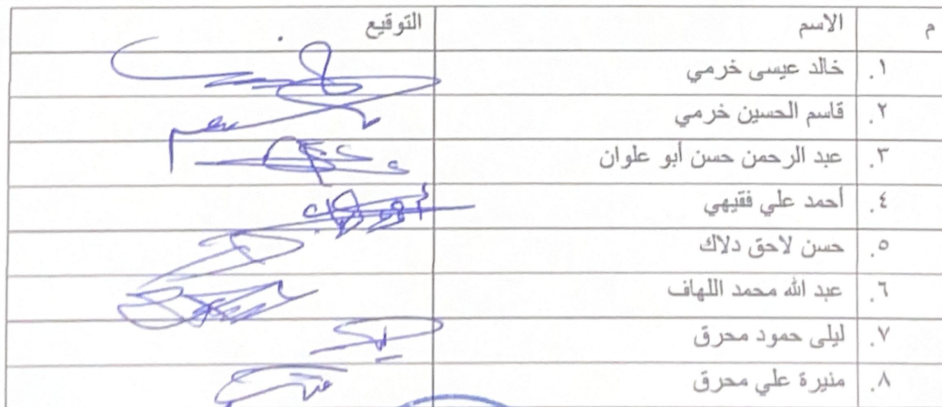 م الاسم التوقيع
١. خالد عيسى خرمي
٢. قاسم الحسين خرمي
٣. عبد الرحمن حسن أبو علوان
٤. أحمد علي فقيهي
٥. حسن لاحق دلاك
٦. عبد الله محمد اللهاف
٧. ليلى حمود محرق
٨. منيرة علي محرق